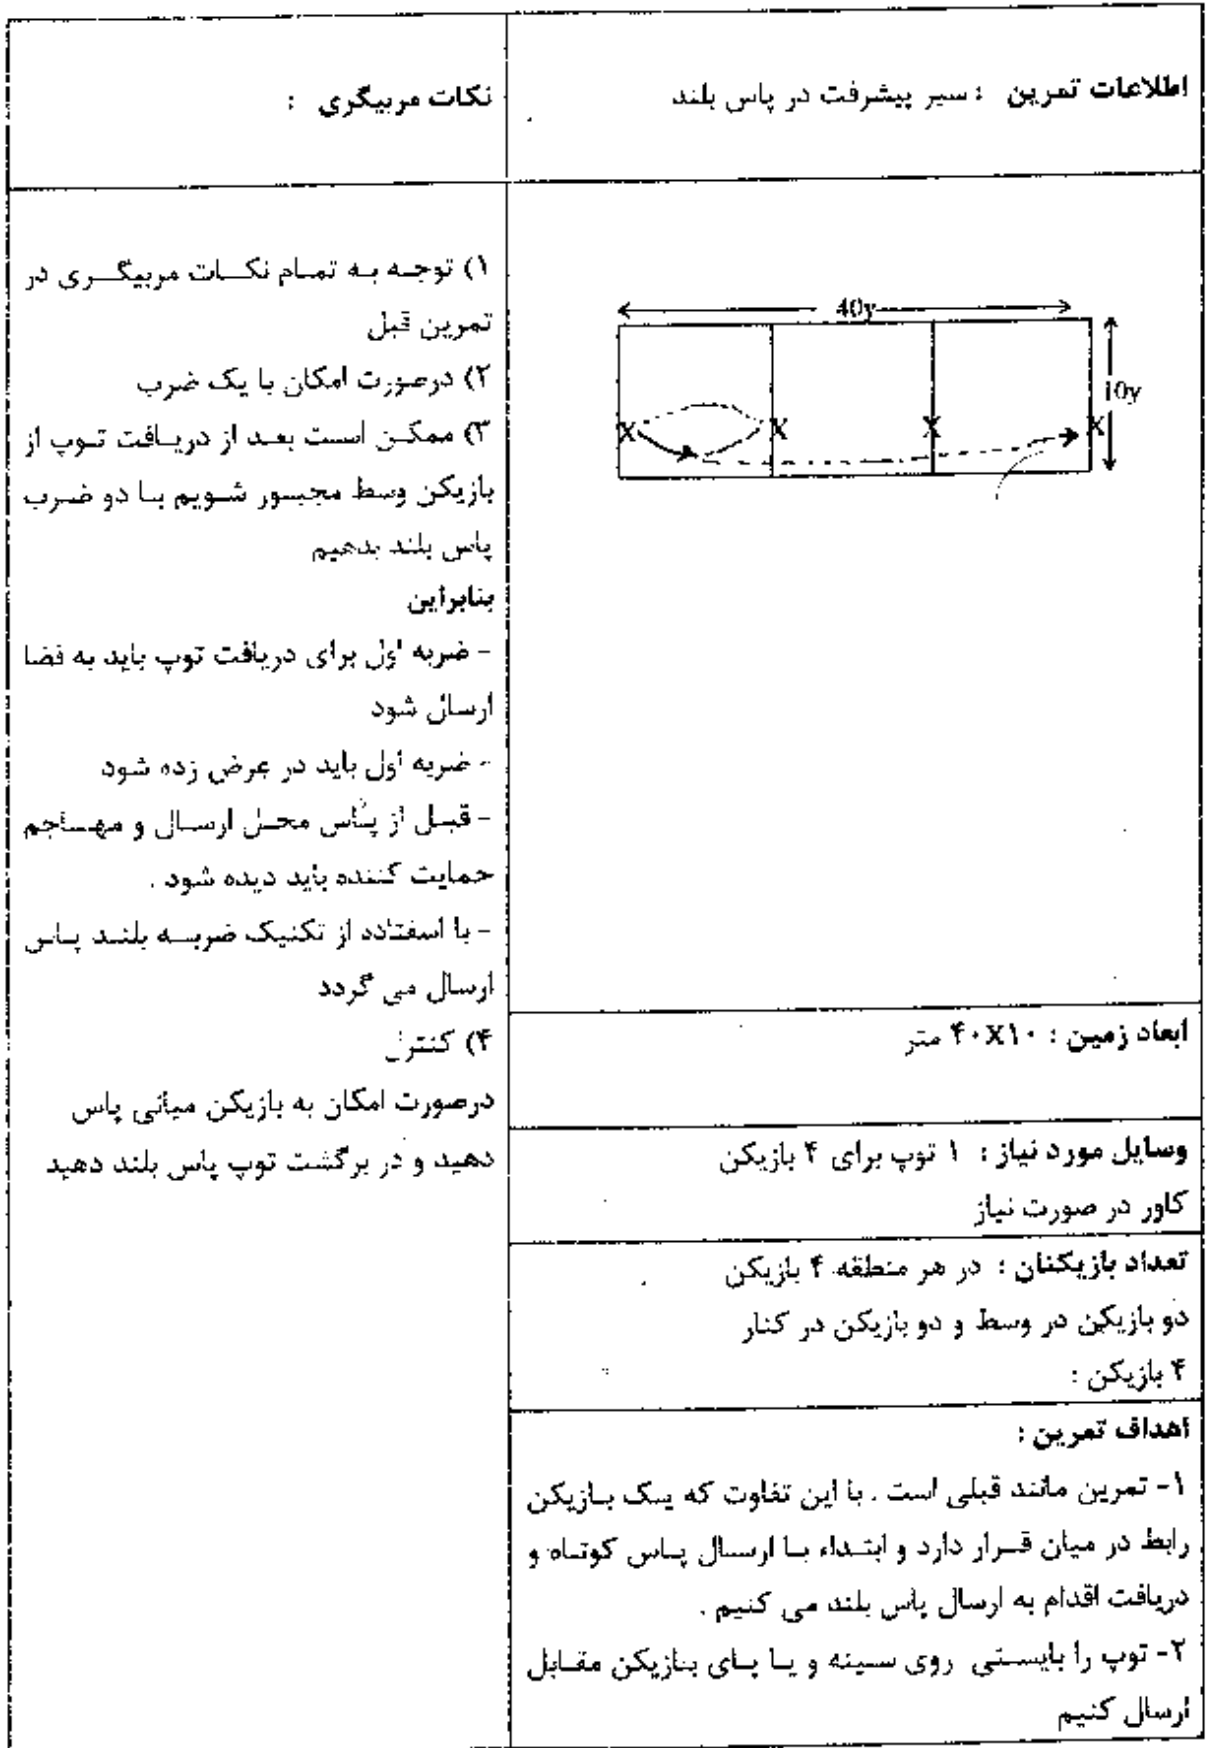 اطلاعات تمرین : سیر پیشرفت در پاس بلند
40y
10y
X X X X
ابعاد زمین : ۴۰X۱۰ متر
وسایل مورد نیاز : ۱ توپ برای ۴ بازیکن
کاور در صورت نیاز
تعداد بازیکنان : در هر منطقه ۴ بازیکن
دو بازیکن در وسط و دو بازیکن در کنار
۴ بازیکن :
اهداف تمرین :
۱- تمرین مانند قبلی است . با این تفاوت که یک بازیکن
رابط در میان قرار دارد و ابتداء با ارسال پاس کوتاه و
دریافت اقدام به ارسال پاس بلند می کنیم .
۲- توپ را بایستی روی سینه و یا پای بازیکن مقابل
ارسال کنیم
نکات مربیگری :
۱) توجه به تمام نکات مربیگری در
تمرین قبل
۲) درصورت امکان با یک ضرب
۳) ممکن است بعد از دریافت توپ از
بازیکن وسط مجبور شویم با دو ضرب
پاس بلند بدهیم
بنابراین
- ضربه اول برای دریافت توپ باید به فضا
ارسال شود
- ضربه اول باید در عرض زده شود
- قبل از پاس محل ارسال و مهاجم
حمایت کننده باید دیده شود .
- با اسفتاده از تکنیک ضربه بلند پاس
ارسال می گردد
۴) کنترل
درصورت امکان به بازیکن میانی پاس
دهید و در برگشت توپ پاس بلند دهید